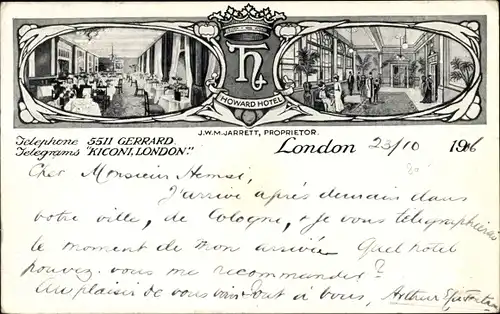 HOWARD HOTEL
J.W.M. JARRETT, PROPRIETOR.
Telephone 5511 GERRARD.
Telegrams "KICONI, LONDON."
London 23/10 1906
Cher Monsieur
J'arrive après demain dans
votre ville, de Cologne, & je vous télégraphierai
le moment de mon arrivée Quel hotel
pouvez-vous me recommander?
Au plaisir de vous voir Tout à vous, Arthur